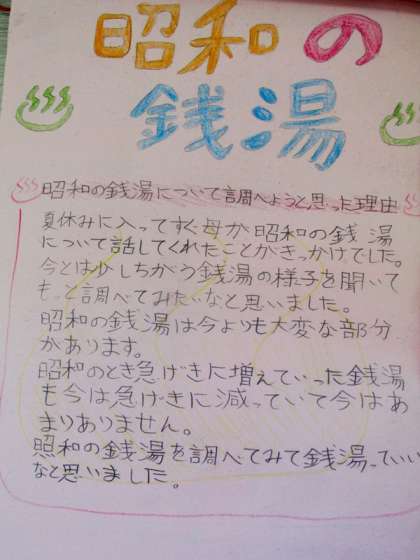 昭和の
銭湯
昭和の銭湯について調べようと思った理由
夏休みに入ってすぐ母が昭和の銭湯
について話してくれたことがきっかけでした。
今とは少しちがう銭湯の様子を聞いて
もっと調べてみたいなと思いました。
昭和の銭湯は今よりも大変な部分
があります。
昭和のとき急げきに増えていった銭湯
も今は急げきに減っていて今はあ
まりありません。
昭和の銭湯を調べてみて銭湯っていい
なと思いました。